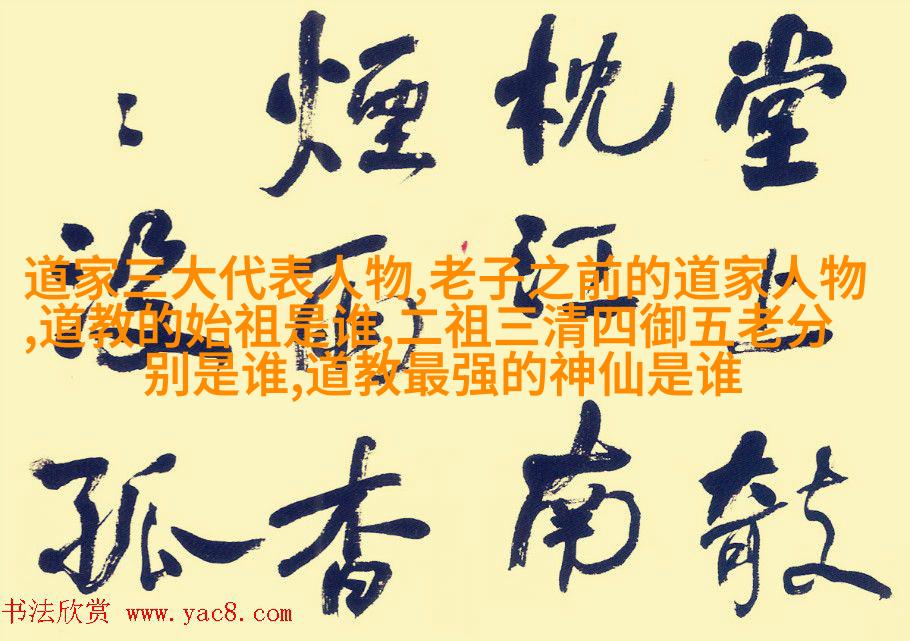 堂上敧
枕江南
煙雨杳
〻沒孤
道家三大代表人物,老子之前的道家人物
,道教的始祖是谁,二祖三清四御五老分
别是谁,道教最强的神仙是谁
书法欣赏 www.yac8.com